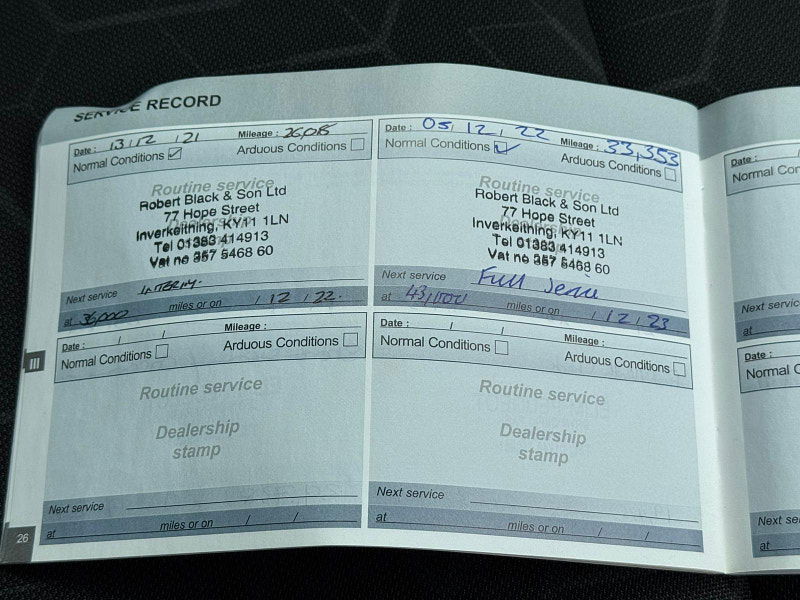 SERVICE RECORD
Date : 13/12/21 Mileage :
Normal Conditions ☑ Arduous Conditions ☐
Routine service
Dealership
Robert Black & Son Ltd
77 Hope Street
Inverkeithing, KY11 1LN
Tel 01383 414913
Vat no 357 5468 60
Next service INTERIM.
at 36,000 miles or on / 12 / 22.
Date : 05/12/22 Mileage : 33,353
Normal Conditions ☑ Arduous Conditions ☐
Routine service
Dealership
Robert Black & Son Ltd
77 Hope Street
Inverkeithing, KY11 1LN
Tel 01383 414913
Vat no 357 5468 60
Next service Full
at 43,000 miles or on / 12 / 23
Date : / / Mileage :
Normal Conditions ☐ Arduous Conditions ☐
Routine service
Dealership
stamp
Next service
at miles or on / /
Date : / / Mileage :
Normal Conditions ☐ Arduous Conditions ☐
Routine service
Dealership
stamp
Next service
at miles or on / /
III
26
Date :
Normal
Next
at
Date :
Normal
Next
at